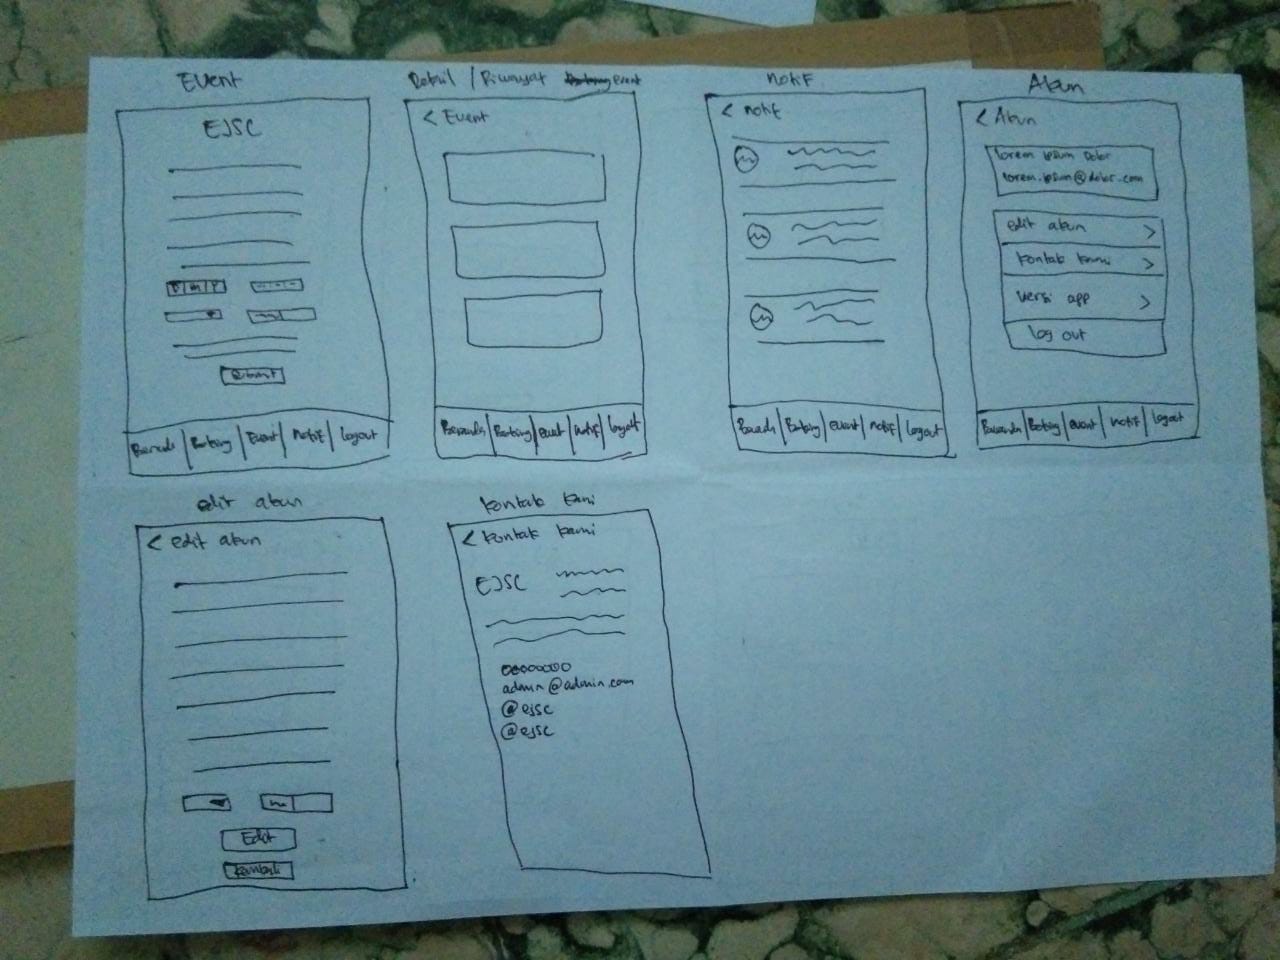 Event
EJSC
Submit
Beranda
Booking
Event
Notif
Logout
Detail / Riwayat event
< Event
Beranda
Booking
event
notif
logout
notif
< notif
Beranda
Booking
event
notif
logout
Akun
< Akun
lorem ipsum Dolor
lorem.ipsum@dolor.com
edit akun >
kontak kami >
versi app >
log out
Beranda
Booking
event
notif
logout
edit akun
< edit akun
Edit
kembali
kontak kami
< kontak kami
EJSC
admin@admin.com
@ejsc
@ejsc